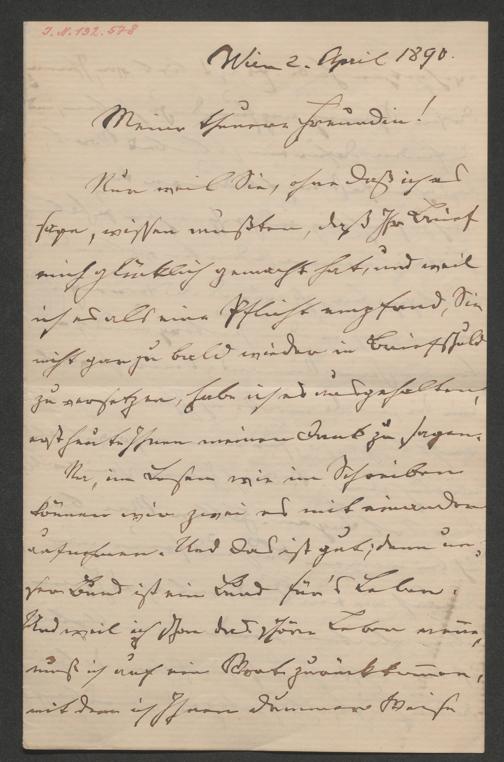 J. N. 192.578
Wien 2. April 1890.
Meine theuere Freundin!
Nur weil Sie, ohne daß ich es
sage, wissen mußten, daß Ihr Brief
mich glücklich gemacht hat, und weil
ich es als eine Pflicht empfand, Sie
nicht gar zu bald wieder in Briefschuld
zu versetzen, habe ich es ausgehalten,
erst heute Ihnen meinen Dank zu sagen.
Na, im Lesen wie im Schreiben
können wir zwei es mit einander
aufnehmen. Und das ist gut, denn un-
ser Bund ist ein Bund für's Leben.
Und weil ich schon das schöne Leben nenne,
muß ich auf ein Wort zurückkommen,
mit dem ich Ihnen dummer Weise